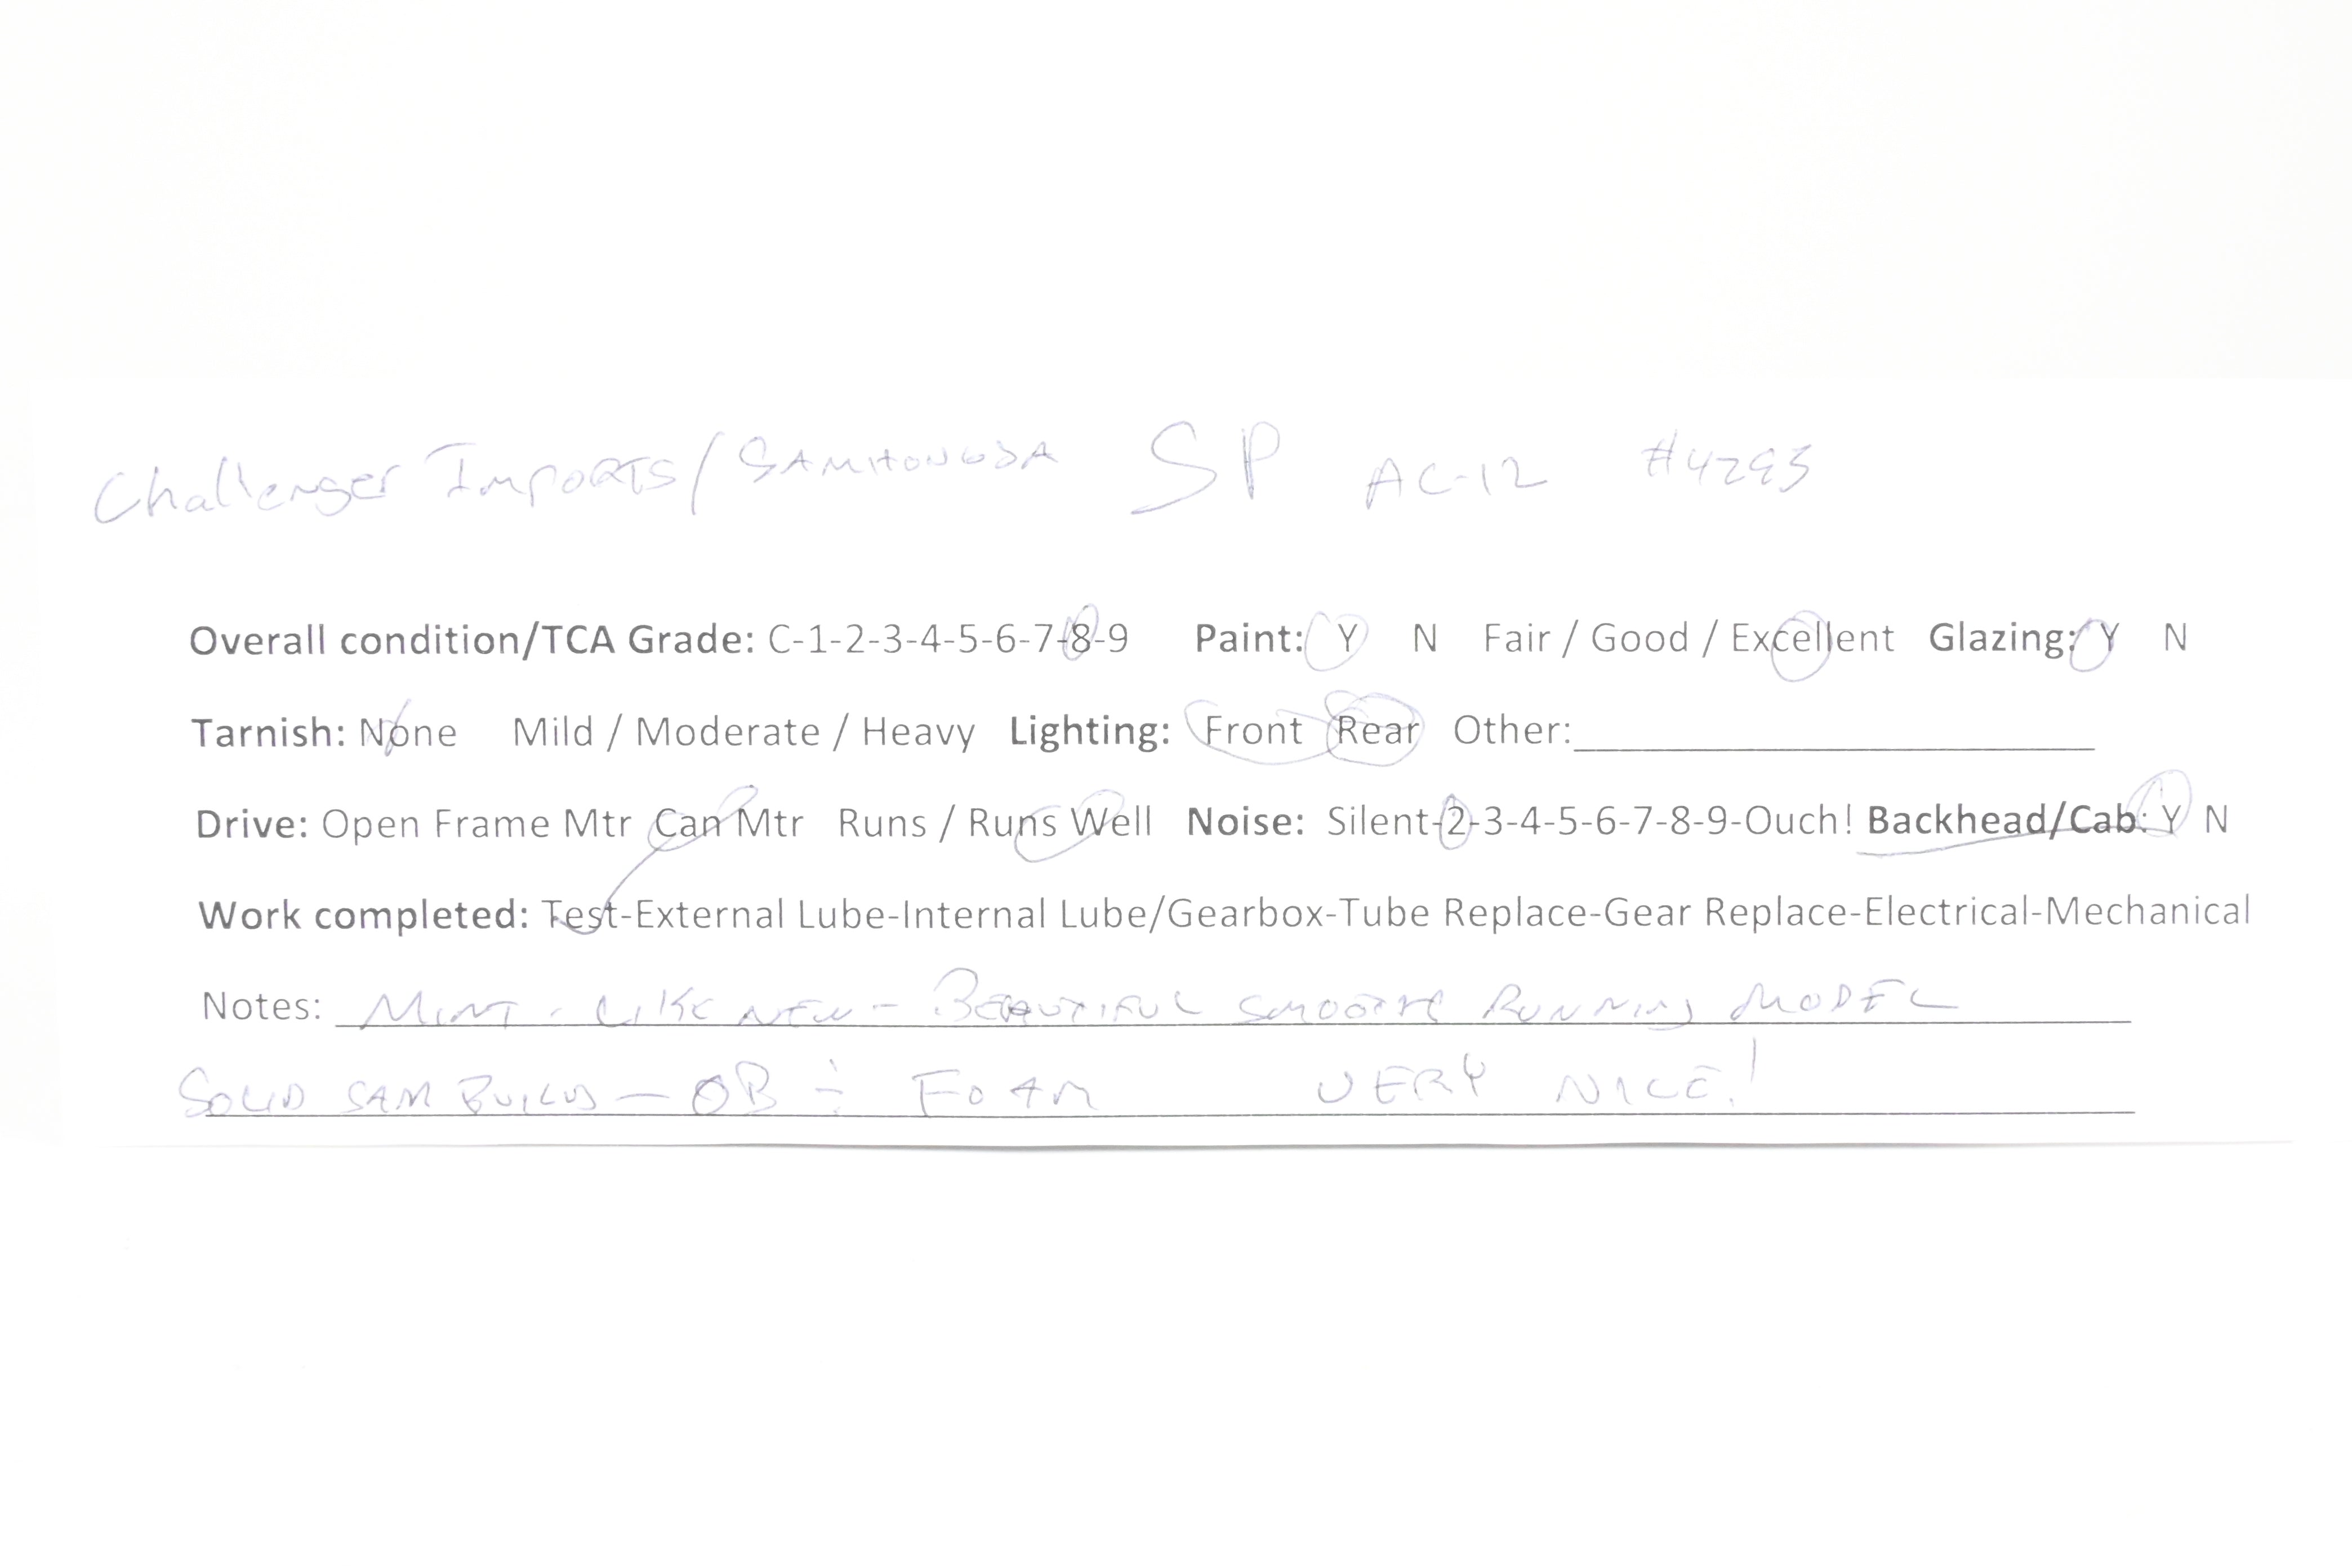 Challenger Imports/SAMHONGSA SP AC-12 #4293
Overall condition/TCA Grade: C-1-2-3-4-5-6-7-8-9 Paint: Y N Fair / Good / Excellent Glazing: Y N
Tarnish: None Mild / Moderate / Heavy Lighting: Front Rear Other:
Drive: Open Frame Mtr Can Mtr Runs / Runs Well Noise: Silent-2-3-4-5-6-7-8-9-Ouch! Backhead/Cab: Y N
Work completed: Test-External Lube-Internal Lube/Gearbox-Tube Replace-Gear Replace-Electrical-Mechanical
Notes: MINT - LIKE NEW - BEAUTIFUL SMOOTH RUNNING MODEL
SOLID SAM BUILD - OB + FOAM VERY NICE!